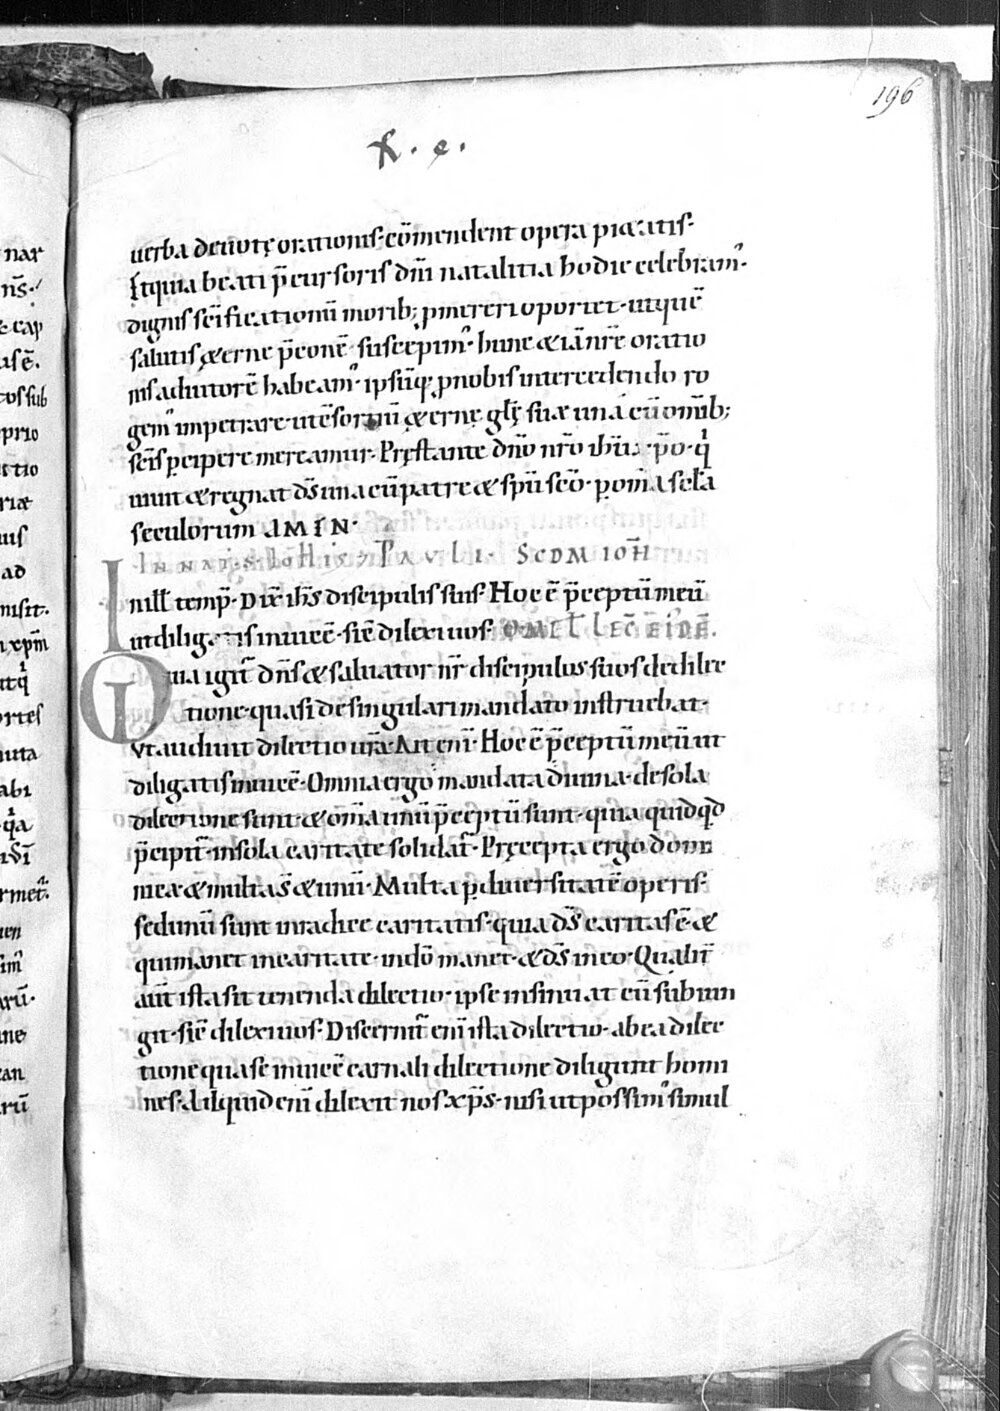 196
uerba deuotę orationis· cōmendent opera pietatis·
Et quia beati p̄cursoris dn̄i natalitia hodie celebram᷒·
dignis sc̄ificationū morib; p̱mereri oportet· ut quē
salutis æterne p̄conē· suscepim᷒· hunc & iān̄re oratio
nis adiutorē habeam᷒· ipsūq; p̱ nobis intercedendo ro
gem᷒ impetrare· ut c̄sortiū æternę gl̄ę suæ una cū om̄ib;
sc̄is p̱cipere mereamur· Pręstante dn̄o nr̄o ih̄u
uiuit & regnat d̄s una cū patre & sp̄u sc̄o· p̱ om̄a sc̄la
seculorum AMEN·
IN NAT· S· IOHIS 7 PAVLI· SCDM IOH̄
In ill̄ temp̱· Dix̄ ih̄s discipulis suis· Hoc ē p̄ceptū meū
ut diligatis inuicē· sic̄ dilexi uos·
Qvia igit̄ dn̄s & saluator nr̄ discipulos suos de dilec
tione· quasi de singulari mandato instruebat·
Vt audiunt dilectio ur̄a· Ait eni̅· Hoc ē p̄ceptū meū ut
diligatis inuicē· Omnia ergo mandata diuina· de sola
dilectione sunt· & om̄ia unū p̄ceptū sunt· quia quidq̇d
p̄cipit̄· in sola caritate solidat̄· Pręcepta ergo domi
nica & multa s̄· & unū· Multa p̱ diuersitatē operis·
sed unū sunt in radice caritatis· quia d̄s caritas ē· &
qui manet in caritate· in dō manet· & d̄s in eo· Qualit̄
aut̄ ista sit tenenda dilectio· ipse insinuat cū subiun
git· sic̄ dilexi uos· Discernit̄ eni̅ ista dilectio· ab ea dilec
tione qua se inuicē carnali dilectione diligunt homi
nes· Ad quid eni̅ dilexit nos xp̄s· nisi ut possim᷒ simul